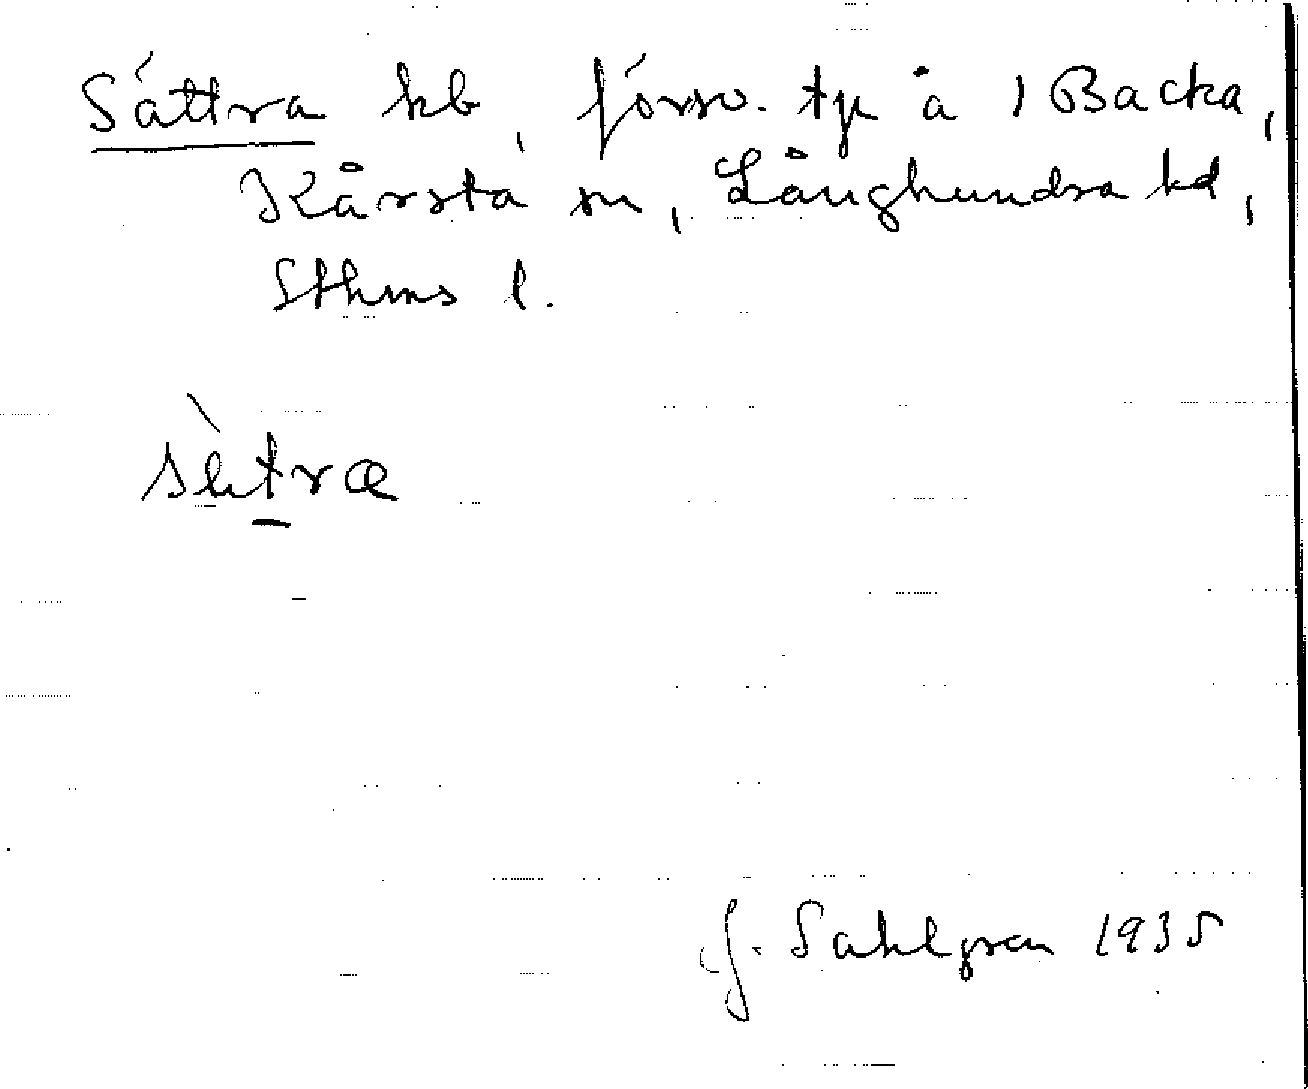 Sättra hb, försv. tp å 1 Backa,
Kårsta sn, Långhundra hd,
Sthms l.
sètra
J. Sahlgren 1935